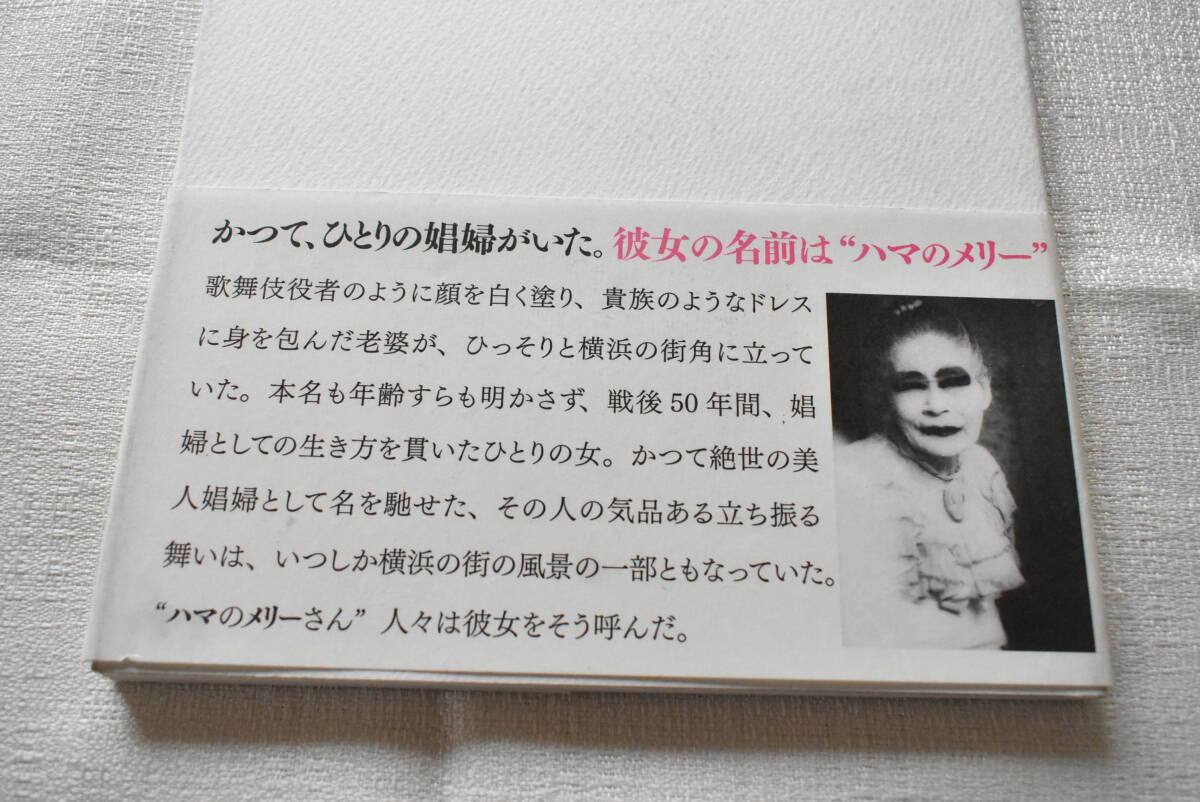 かつて、ひとりの娼婦がいた。彼女の名前は“ハマのメリー”
歌舞伎役者のように顔を白く塗り、貴族のようなドレス
に身を包んだ老婆が、ひっそりと横浜の街角に立って
いた。本名も年齢すらも明かさず、戦後50年間、娼
婦としての生き方を貫いたひとりの女。かつて絶世の美
人娼婦として名を馳せた、その人の気品ある立ち振る
舞いは、いつしか横浜の街の風景の一部ともなっていた。
“ハマのメリーさん”人々は彼女をそう呼んだ。